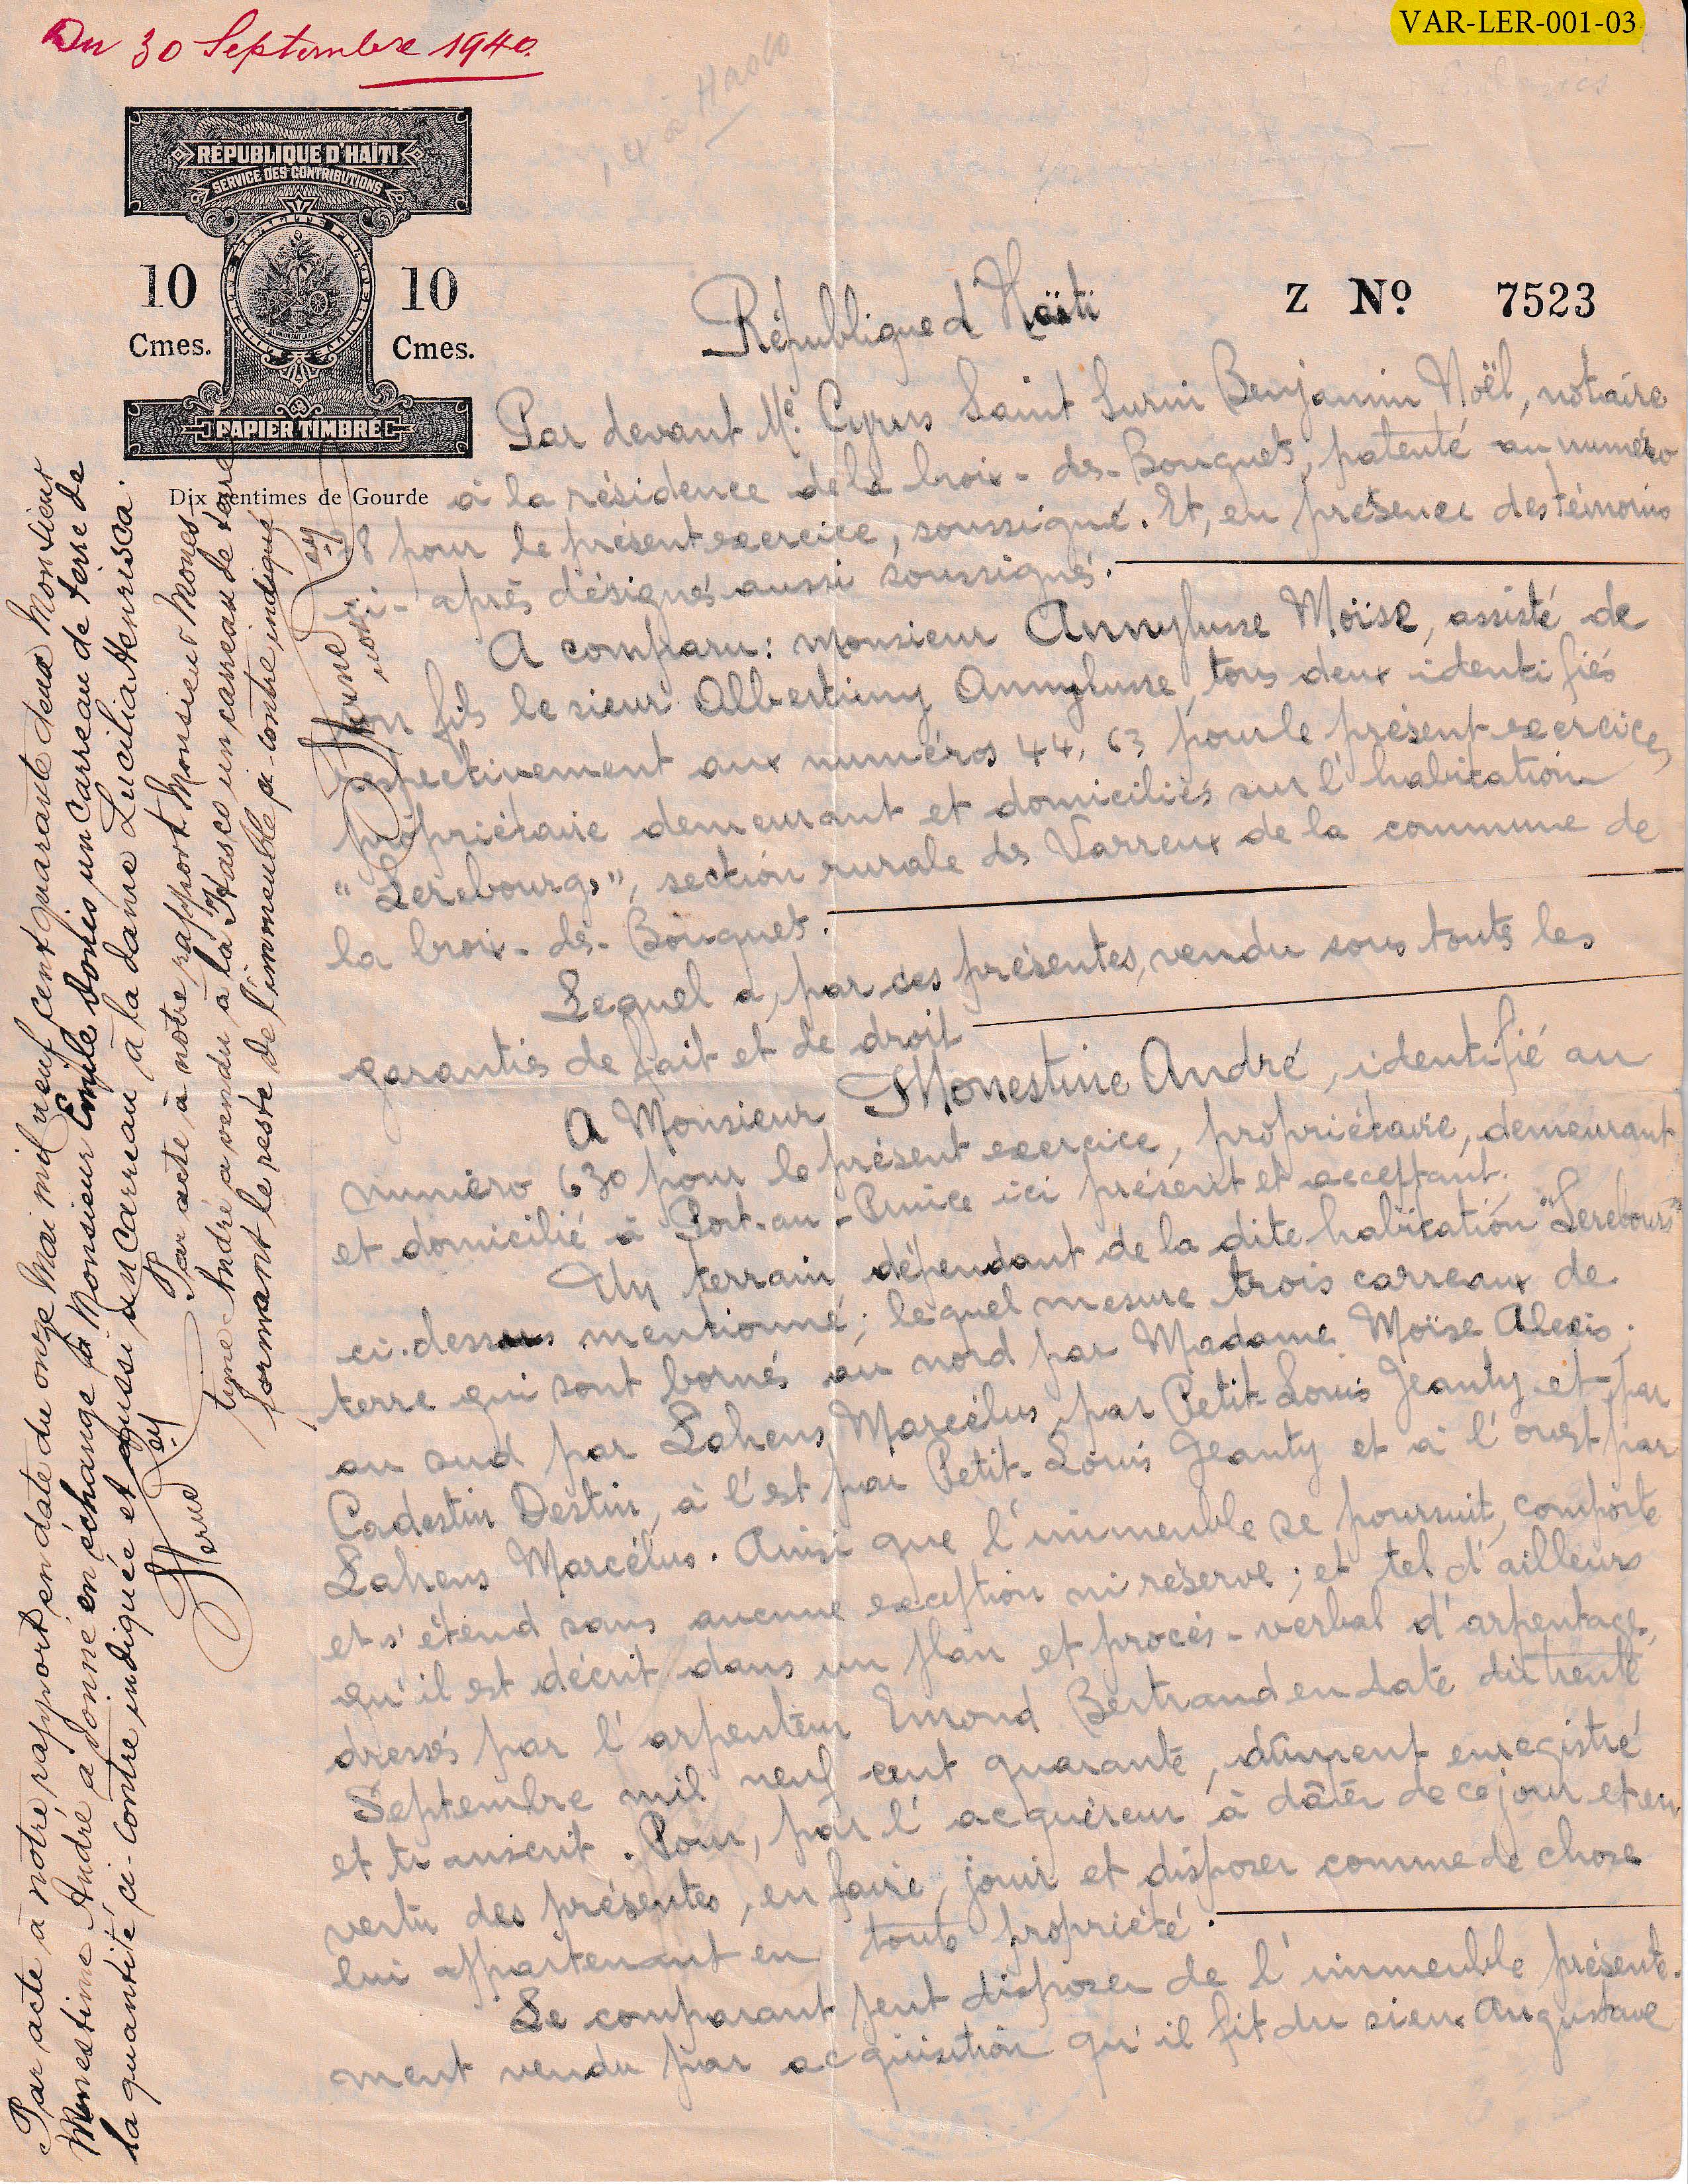 Du 30 Septembre 1940.
VAR-LER-001-03
RÉPUBLIQUE D'HAÏTI
SERVICE DES CONTRIBUTIONS
10 10
Cmes. Cmes.
PAPIER TIMBRÉ
Dix Centimes de Gourde
Z No. 7523
République d'Haïti
Par devant Me. Cyrus Saint Surin Benjamin Noël, notaire
à la résidence de la Croix-des-Bouquets, patenté au numéro
8 pour le présent exercice, soussigné. Et, en présence des témoins
ci-après désignés aussi soussignés.
A comparu: Monsieur Annylusse Moïse, assisté de
son fils le sieur Albertiny Annylusse, tous deux identifiés
respectivement aux numéros 44, 63 pour le présent exercice,
propriétaire demeurant et domiciliés sur l'habitation
"Lerebourg", section rurale des Varreux de la commune de
la Croix-des-Bouquets.
Lequel a, par ces présentes, vendu sous toutes les
garanties de fait et de droit
A Monsieur Monestine André, identifié au
numéro 630 pour le présent exercice, propriétaire, demeurant
et domicilié à Port-au-Prince ici présent et acceptant.
Un terrain, dépendant de la dite habitation "Lerebours"
ci-dessus mentionné; lequel mesure trois carreaux de
terre qui sont bornés au nord par Madame Moïse Alexis;
au sud par Lahens Marcélus, par Petit-Louis Jeanty et par
Cadestin Destin, à l'est par Petit-Louis Jeanty et à l'ouest par
Lahens Marcélus. Ainsi que l'immeuble se poursuit, comporte
et s'étend sans aucune exception ni réserve; et tel d'ailleurs
qu'il est décrit dans un plan et procès-verbal d'arpentage,
dressés par l'arpenteur Emond Bertrand en date du trente
Septembre mil neuf cent quarante, dûment enregistré
et transcrit. Pour, par l'acquéreur à dâter de ce jour et en
vertu des présentes, en faire, jouir et disposer comme de chose
lui appartenant en toute propriété.
Le comparant peut disposer de l'immeuble présente-
ment vendu par acquisition qu'il fit du sieur Augustave
Par acte à notre rapport en date du onze Mai mil neuf cent quarante deux Monsieur
Monestime André a donné en échange à Monsieur Emile Dorlis un Carreau de terre de
la quantité ci-contre indiquée et aussi un Carreau à la dame Lucilia Henrisca.
Par acte à notre rapport Monsieur Mones-
time André a vendu à la Hasco un carreau de terre
formant le reste de l'immeuble ci-contre indiqué